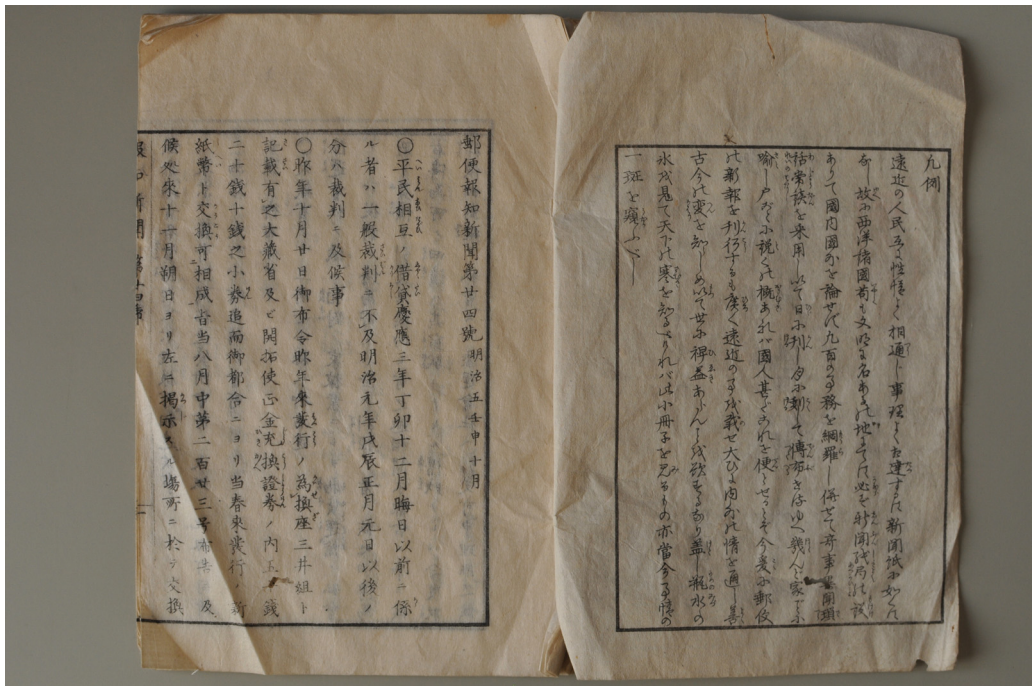 凡例
遠近の人民互に性情よく相通し事理よく上達するは新聞紙に如くは
なし故に西洋諸國苟も文明の名ある地にては必を新聞紙局の設
ありて國内國外を論せす凡百の事務を網羅し併せて奇事異聞
を采用し以て日に刊し月に刻して傳布さはゆへ幾んと家ことに
喩し戸ことに説くの概あれハ國人甚たこれを便とせり今爰に郵便
の新報を刊行するも廣く遠近の事を載せ大ひに内外の情を通し善
古今の変を知らしめ以て世に裨益あらんことを欲するなり蓋し瓶水の
氷を見て天下の寒を知るなれハ此小冊子を見るもの亦當今事情の
一斑を窺ふへし
郵便報知新聞第廿四號 明治五壬申十月
○平民相互ノ借貸慶應三年丁卯十二月晦日以前ニ係
ル者ハ一般裁判ニ不及明治元年戊辰正月元日以後ノ
分ハ裁判ニ及候事
○昨年十月廿日御布令昨年來發行ノ為換座三井組ト
記載有之大藏省及ヒ開拓使正金兌換證券ノ内五十錢
二十錢十錢之小券追而御都合ニヨリ当春來發行ノ新
紙幣ト交換可相成旨当八月中第二百廿三号布告ニ及
候処來十一月朔日ヨリ左ニ掲示スル場所ニ於テ交換
報知新聞第廿四號